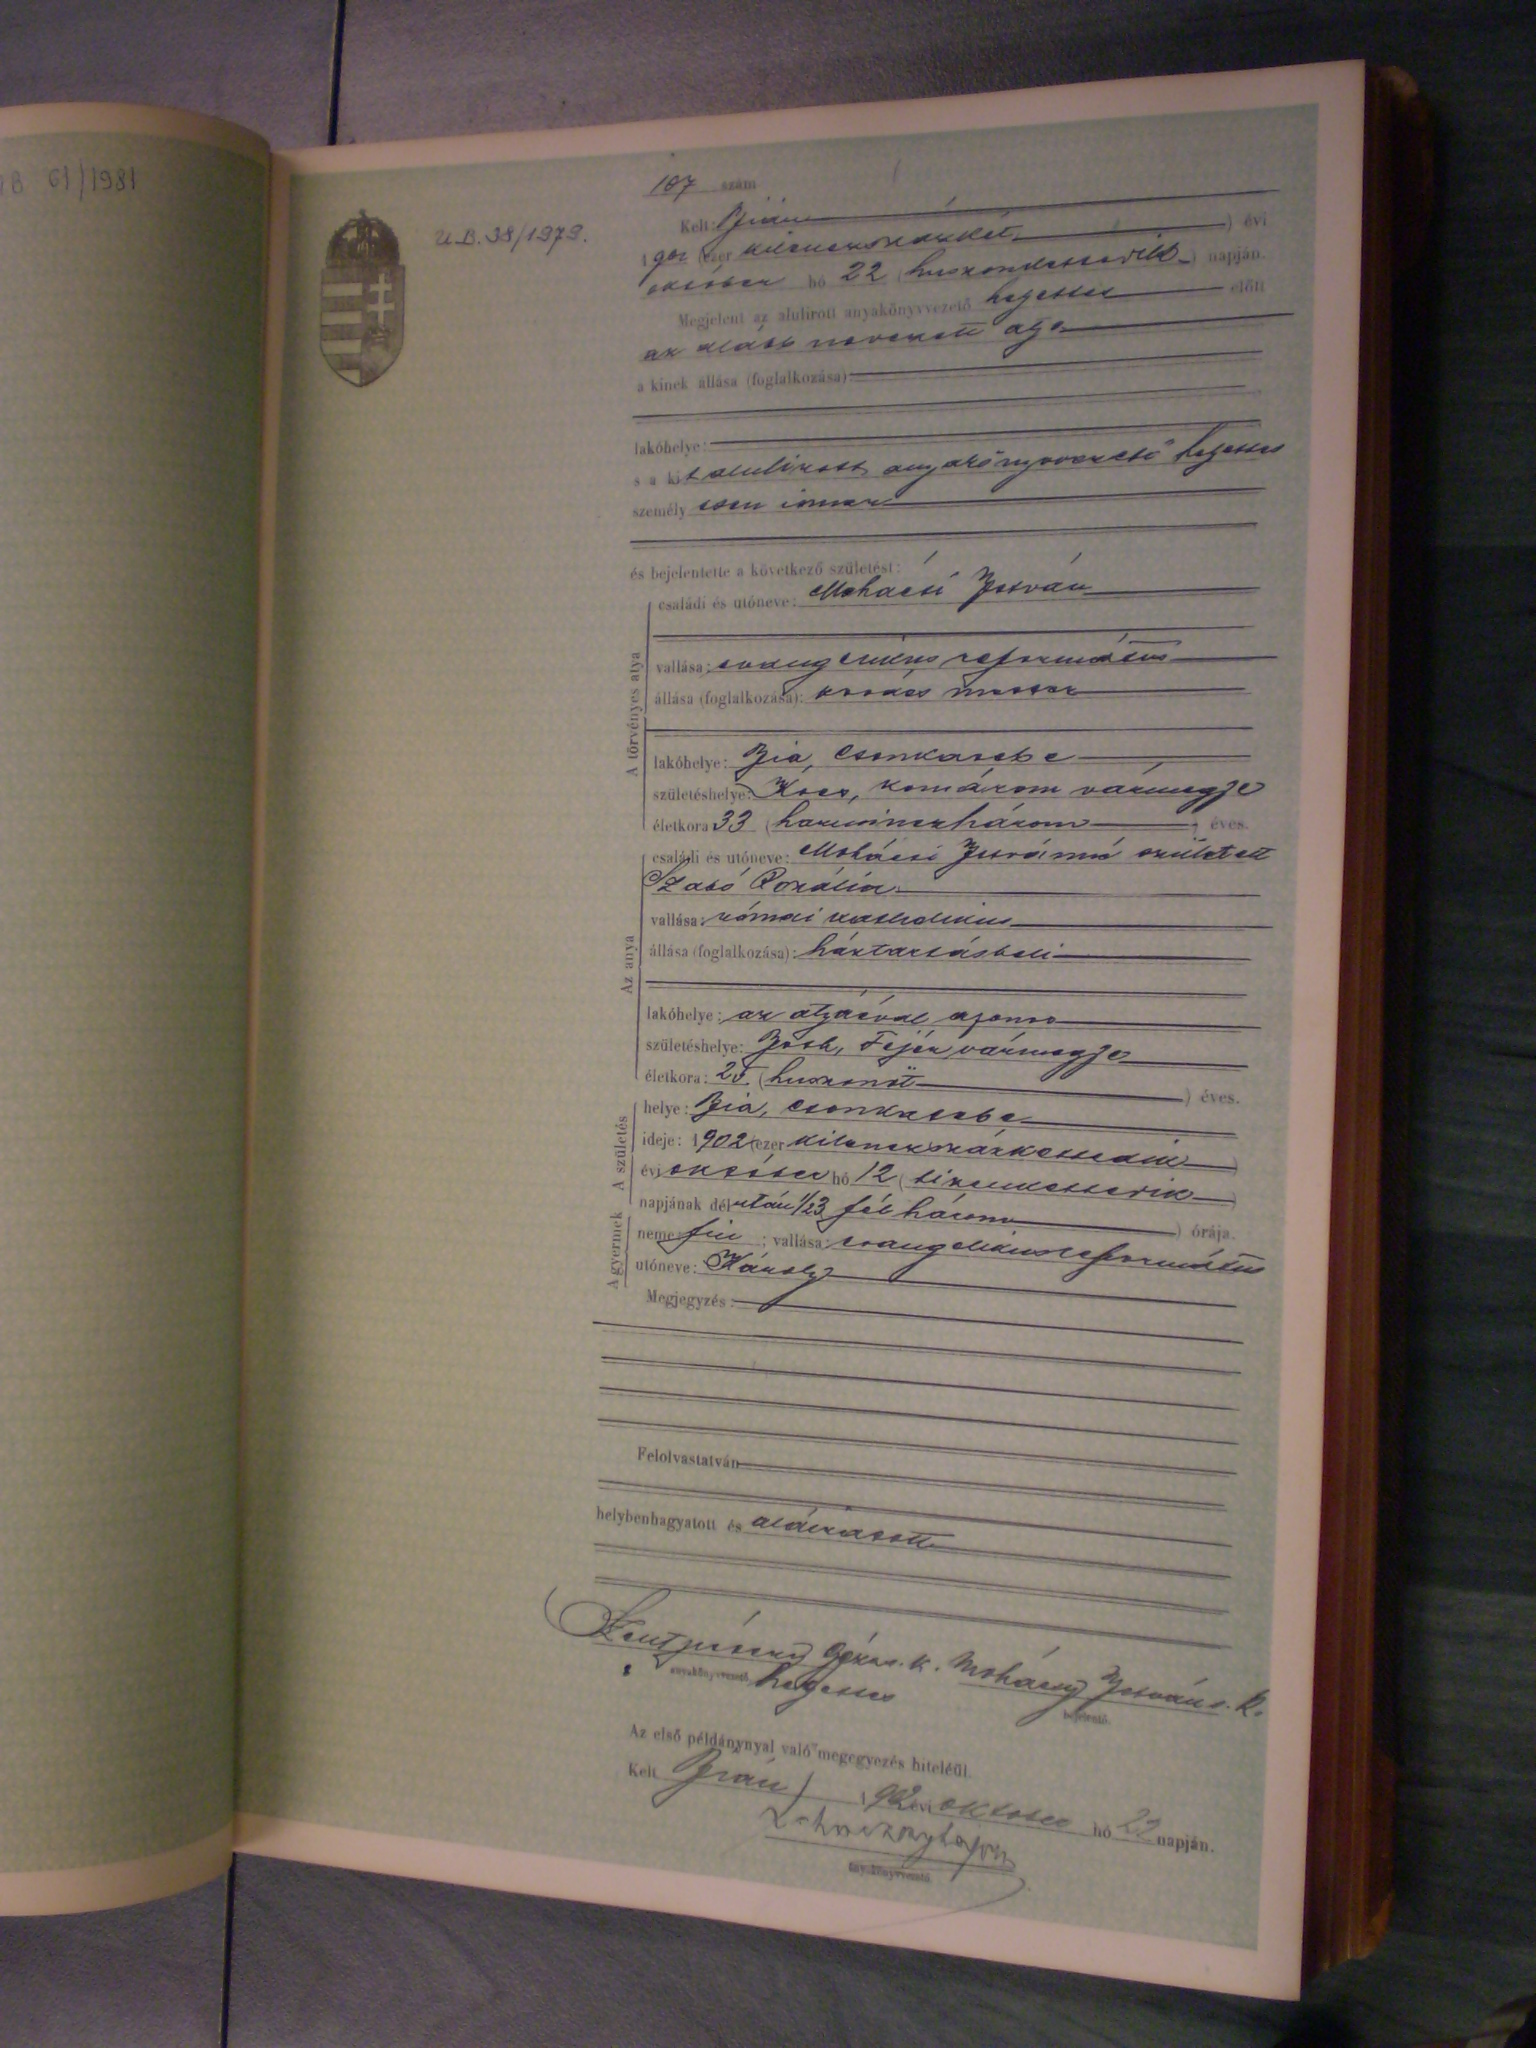 61/1981
U.B. 38/1979.
167 szám
Kelt: Bián
1902 (ezer kilenczszázkét) évi
október hó 22 (huszonkettedik) napján.
Megjelent az alulirott anyakönyvvezető helyettes előtt
az alább nevezett atya
a kinek állása (foglalkozása):
lakóhelye:
s a kit alulirott anyakönyvvezető helyettes
személyesen ismer
és bejelentette a következő születést:
A törvényes atya
családi és utóneve: Mohácsi István
vallása: evangelikus református
állása (foglalkozása): kovács mester
lakóhelye: Bia, Csonkasebe
születéshelye: Kocs, Komárom vármegye
életkora: 33 (harminczhárom) éves.
Az anya
családi és utóneve: Mohácsi Istvánné született
Szabó Rozália
vallása: római katholikus
állása (foglalkozása): háztartásbeli
lakóhelye: az atyáéval azonos
születéshelye: Fejér vármegye
életkora: 25 (huszonöt) éves.
A születés
helye: Bia, Csonkasebe
ideje: 1902 (ezer kilenczszázkettedik)
évi október hó 12 (tizenkettedik)
napjának délután 1/23 fél három) órája.
A gyermek
neme: fiu; vallása: evangelikus református
utóneve: Károly
Megjegyzés:
Felolvastatván
helybenhagyatott és aláiratott
Géza s. k. Mohácsy István s. k.
anyakönyvvezető helyettes
bejelentő.
Az első példánynyal való megegyezés hiteléül.
Kelt Bián, 1902 évi október hó 22 napján.
anyakönyvvezető